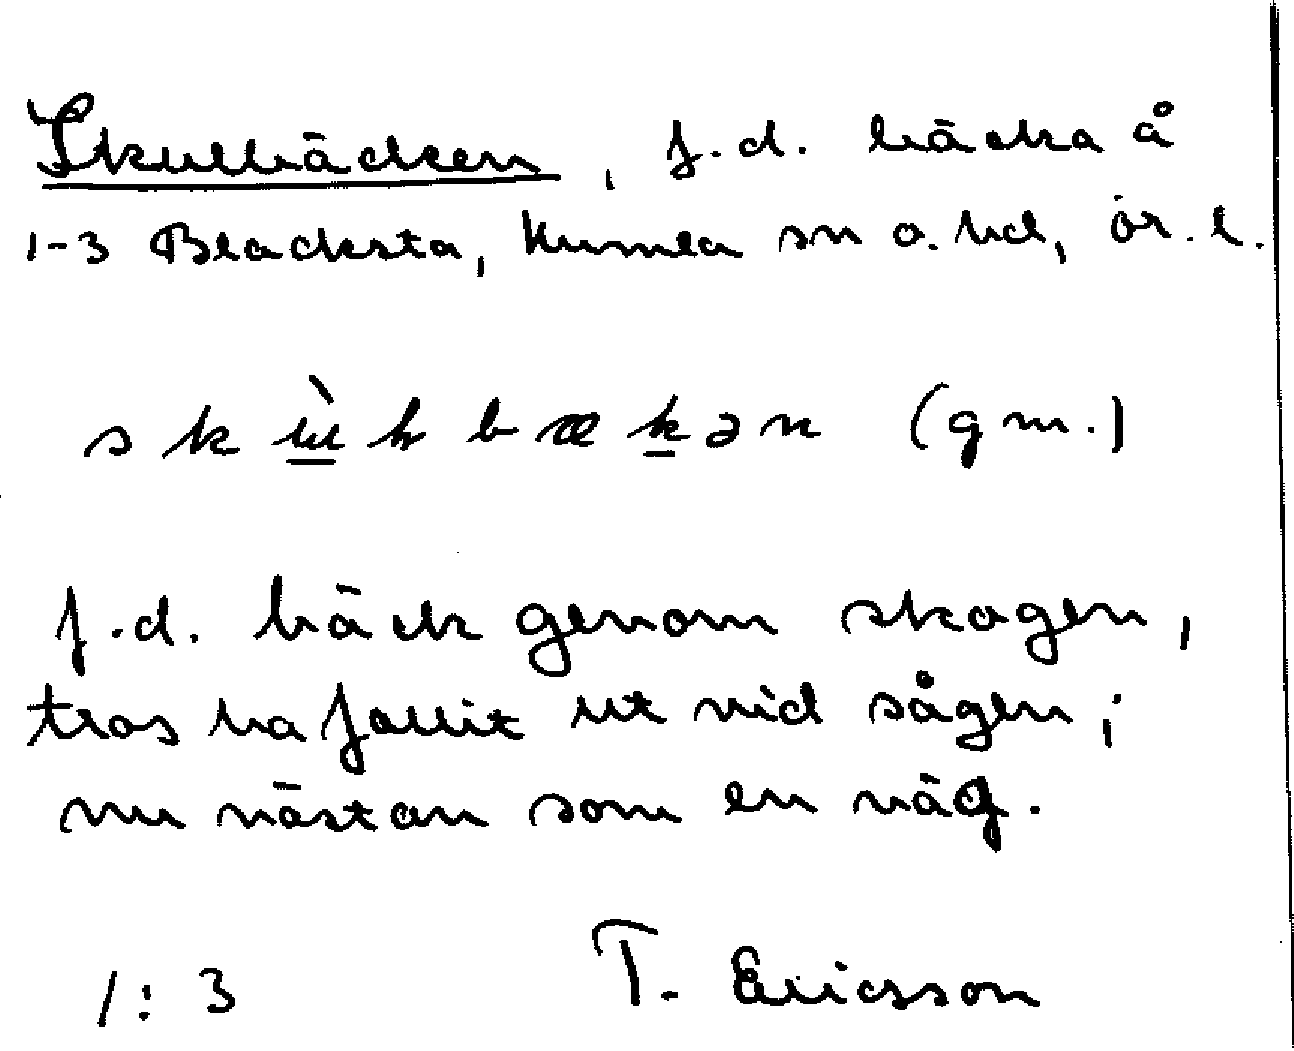 Skulbäcken, f.d. bäcka å
1-3 Blacksta, Kumla sn o. hd, ör. l.
(gm.)
f.d. bäck genom skogen,
tros ha fallit ut vid sågen;
nu nästan som en väg.
1:3 T. Ericsson